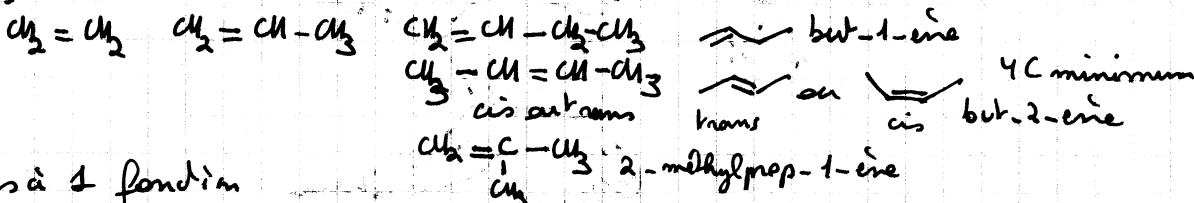 CH2 = CH2 CH2 = CH - CH3 CH2 = CH - CH2 - CH3 but-1-ène
CH3 - CH = CH - CH3 ou 4C minimum
cis ou trans trans cis but-2-ène
CH2 = C - CH3 2-méthylprop-1-ène
CH3
à 1 fonction